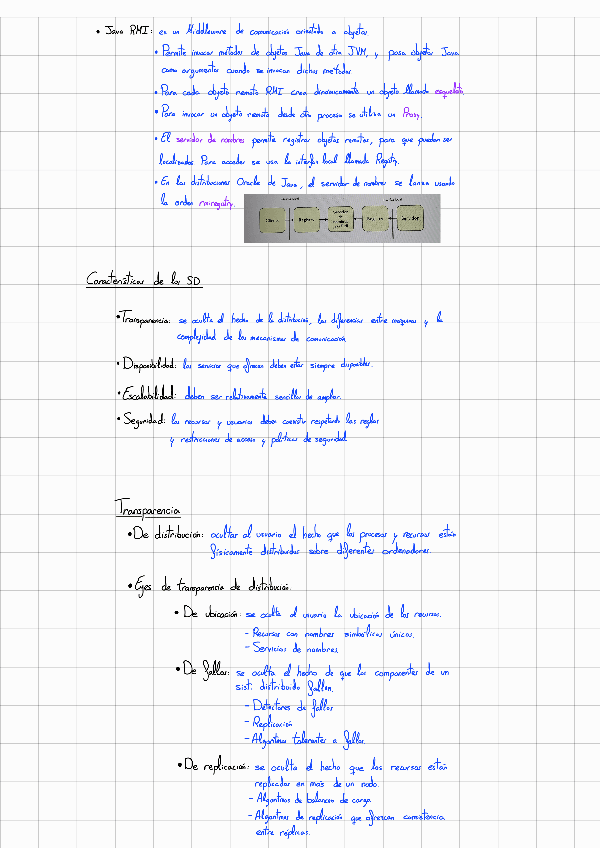 • Java RMI: es un Middleware de comunicación orientado a objetos
• Permite invocar métodos de objetos Java de otra JVM, y pasa objetos Java
como argumentos cuando se invocan dichos métodos
• Para cada objeto remoto RMI crea dinámicamente un objeto llamado esqueleto.
• Para invocar un objeto remoto desde otro proceso se utiliza un Proxy.
• El servidor de nombres permite registrar objetos remotos, para que puedan ser
localizados. Para acceder se usa la interfaz local llamada Registry.
• En las distribuciones Oracle de Java, el servidor de nombres se lanza usando
la orden rmiregistry.
Cliente Registry Servidor de nombres Registry Servidor
Características de los SD
• Transparencia: se oculta el hecho de la distribución, las diferencias entre máquinas y la
complejidad de los mecanismos de comunicación
• Disponibilidad: los servicios que ofrecen deben estar siempre disponibles.
• Escalabilidad: deben ser relativamente sencillos de ampliar.
• Seguridad: los recursos y usuarios deben coexistir respetando las reglas
y restricciones de acceso y políticas de seguridad.
Transparencia
• De distribución: ocultar al usuario el hecho que los procesos y recursos están
físicamente distribuidos sobre diferentes ordenadores.
• Ejes de transparencia de distribución.
• De ubicación: se oculta al usuario la ubicación de los recursos.
- Recursos con nombres simbólicos únicos.
- Servicios de nombres.
• De fallos: se oculta el hecho de que los componentes de un
sist. distribuido fallen.
- Detectores de fallos
- Replicación
- Algoritmos tolerantes a fallos.
• De replicación: se oculta el hecho que los recursos están
replicados en más de un nodo.
- Algoritmos de balanceo de carga
- Algoritmos de replicación que ofrezcan consistencia
entre réplicas.